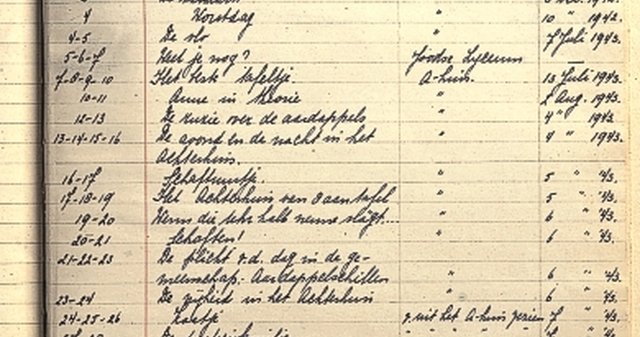 4 Kerstdag " 10 " 1942.
4-5 De vlo " 7 Juli 1943.
5-6-7 Weet je nog? Joodse Lyceum —
7-8-9-10 Het beste tafeltje. A-huis. 13 Juli 1943.
10-11 Anne in theorie " 2 Aug. 1943.
12-13 De ruzie over de aardappels " 4 " 1943.
13-14-15-16 De avond en de nacht in het " 4 " 1943.
Achterhuis.
16-17 Schaftuurtje. " 5 " '43.
17-18-19 Het Achterhuis van 8 aan tafel " 5 " '43.
19-20 Wenn die Uhr halb neune slägt.... " 6 " '43.
20-21 Schaften! " 6 " '43.
21-22-23 De plicht v.d. dag in de ge-
meenschap: Aardappelschillen " 6 " '43.
23-24 De vrijheid in het Achterhuis " 6 " '43.
24-25-26 Kaatje uit het A-huis gezien 7 " '43.